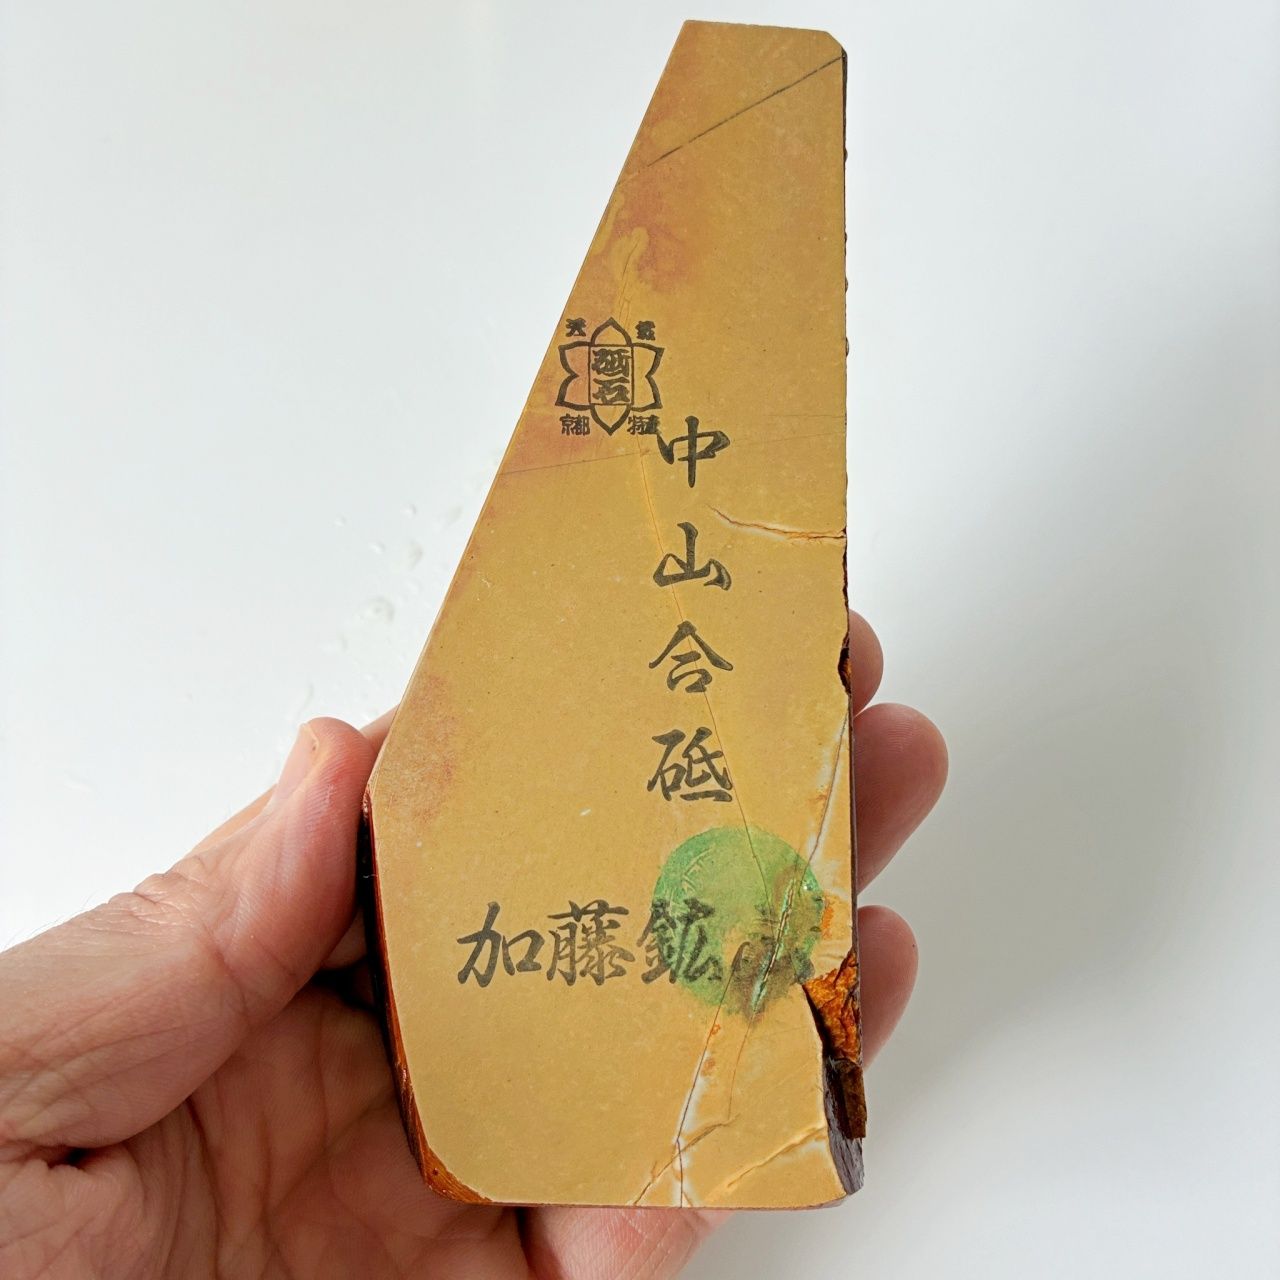 天然
砥石
京都 特産
中山合砥
加藤鉱